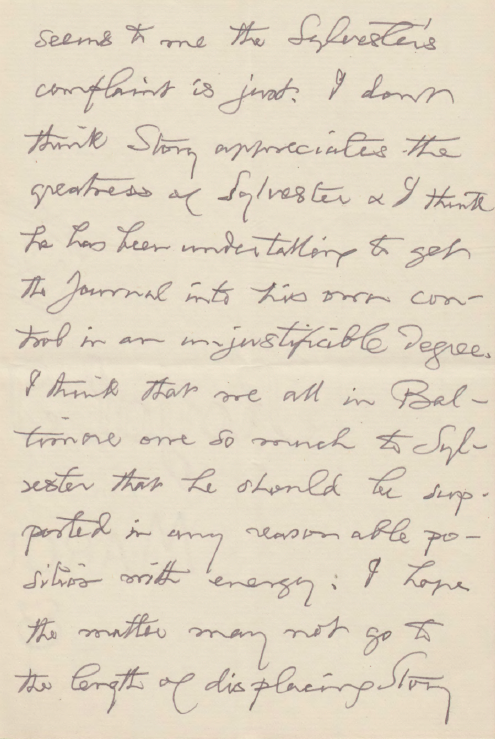 seems to me the Sylvester's
complaint is just. I don't
think Story appreciates the
greatness of Sylvester & I think
he has been undertaking to get
the Journal into his own con-
trol in an unjustifiable degree.
I think that we all in Bal-
timore owe so much to Syl-
vester that he should be sup-
ported in any reasonable po-
sition with energy; I hope
the matter may not go to
the length of displacing Story